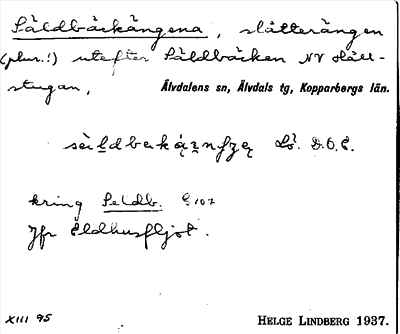 Såldbäckängena, slåtterängen
(plur.!) utefter Såldbäcken NV Håll-
stugan,
Älvdalens sn, Älvdals tg, Kopparbergs län.
Lå. D.O.E.
kring Seldb. E 107
Jfr Eldhusfljot.
XIII 95
HELGE LINDBERG 1937.